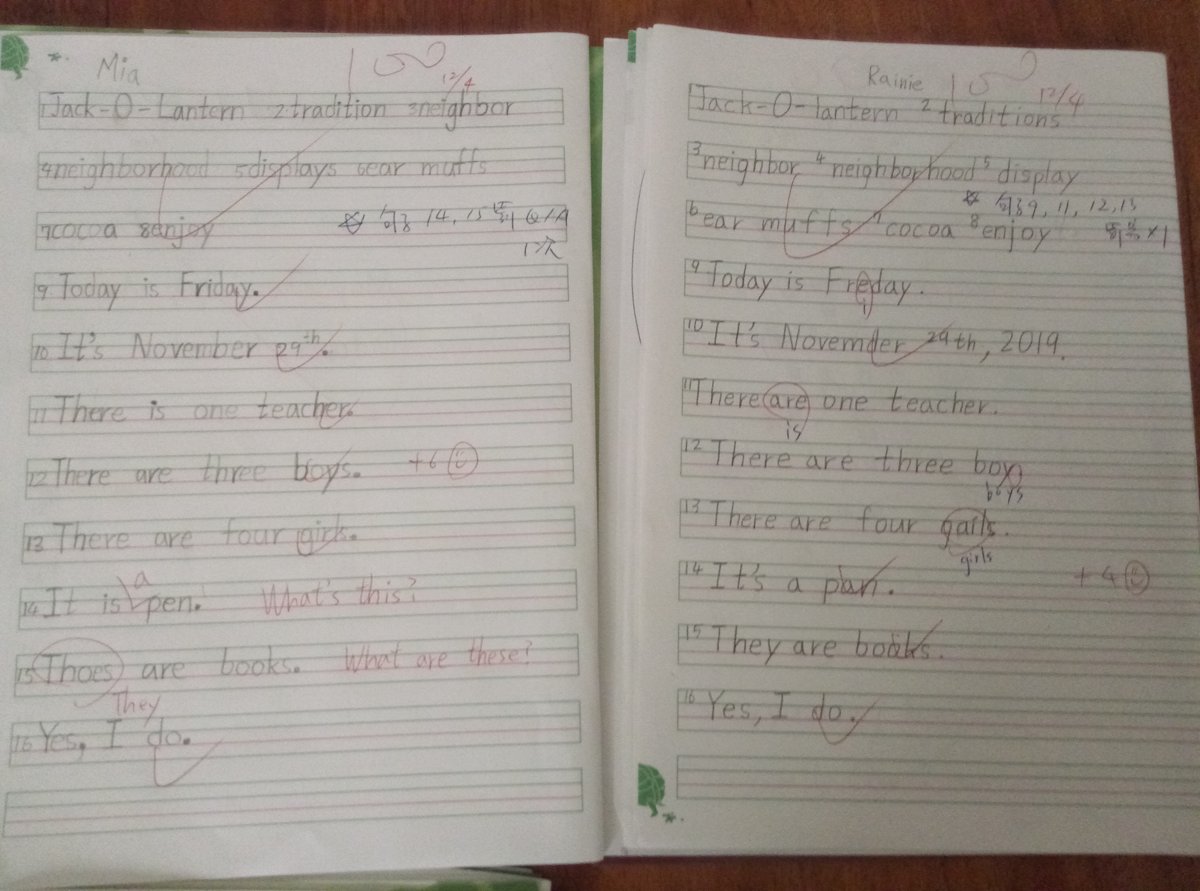 Mia 100 12/4
1 Jack-O-Lantern 2 tradition 3 neighbor
4 neighborhood 5 displays 6 ear muffs
7 cocoa 8 enjoy ☆ 句子 14, 15 Q/A
1次
9 Today is Friday.
10 It's November 29th.
11 There is one teacher.
12 There are three boys. +6
13 There are four girls.
a
14 It is pen. What's this?
15 Thoes are books. What are these?
They
16 Yes, I do.
Rainie 100 12/4
Jack-O-lantern 2 traditions
3 neighbor 4 neighborhood 5 display
☆ 句子 9, 11, 12, 13
6 ear muffs 7 cocoa 8 enjoy ×1
9 Today is Freday.
i
10 It's Novemder 29th, 2019.
11 There are one teacher.
is
12 There are three boy
boys
13 There are four garls.
girls
14 It's a pan. +4
15 They are books.
16 Yes, I do.